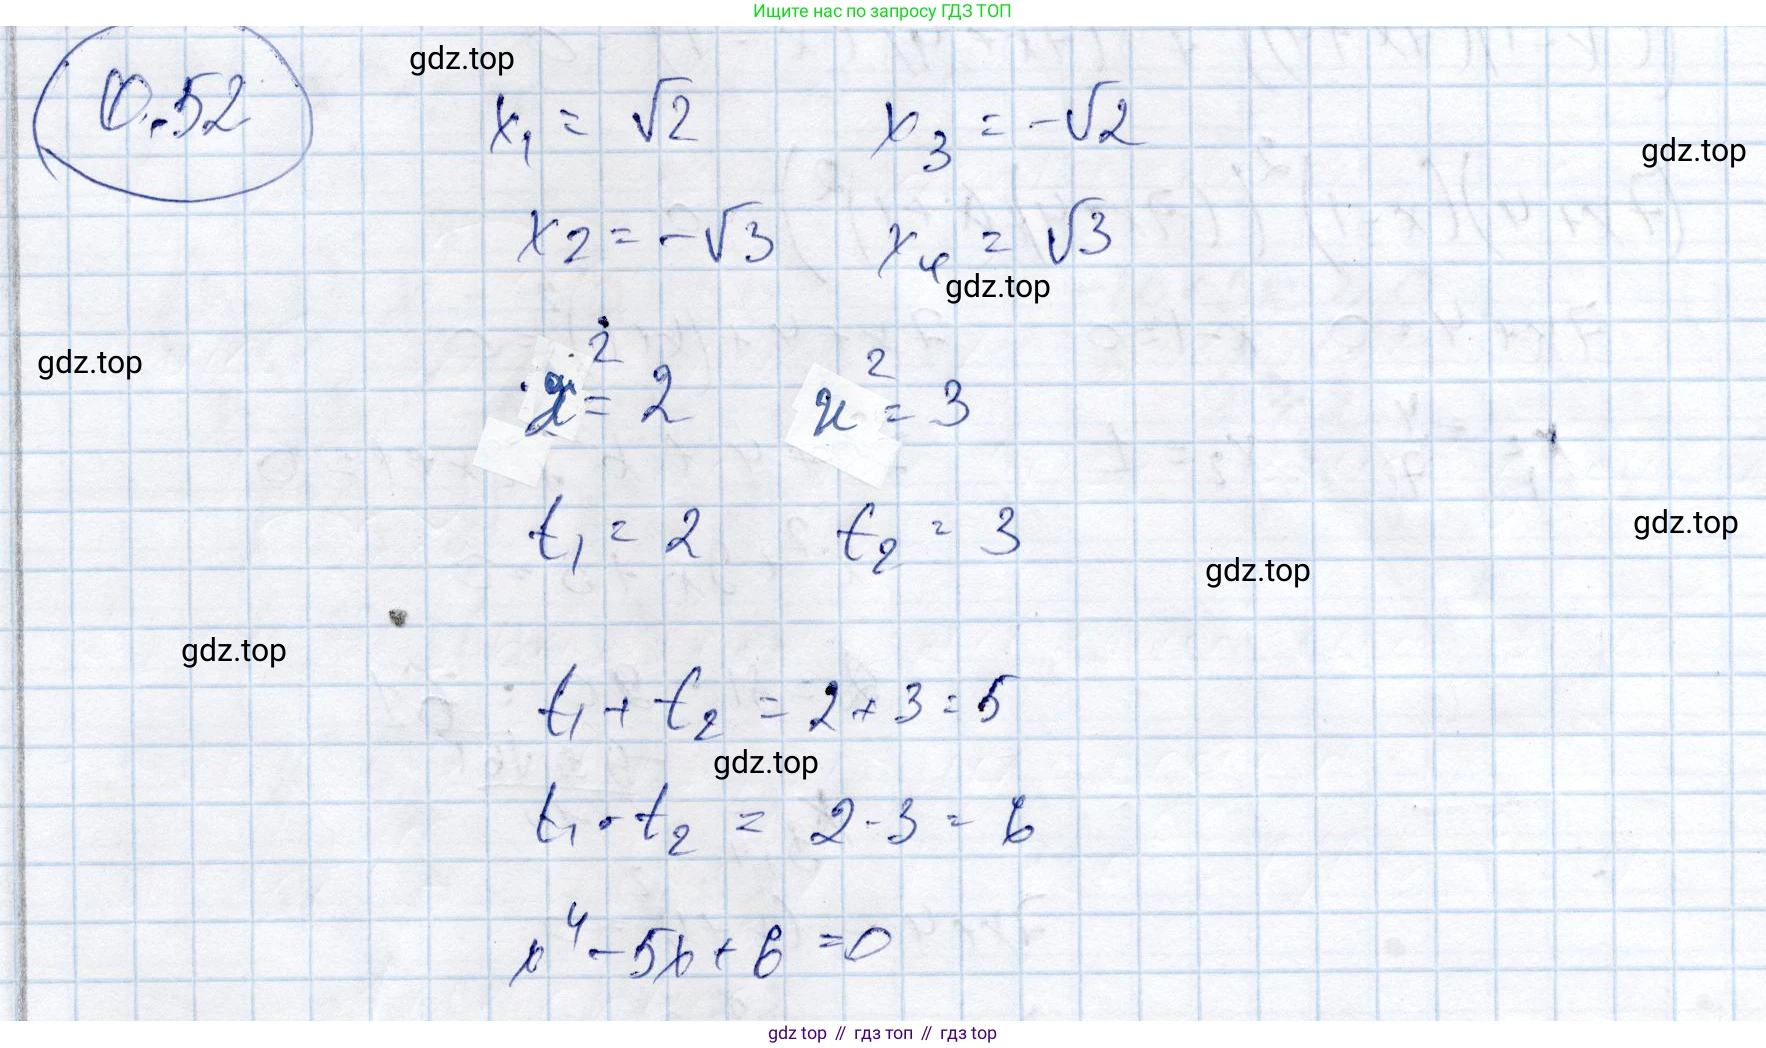 Ищите нас по запросу ГДЗ ТОП
0.52
gdz.top
x₁ = √2 x₃ = -√2
gdz.top
x2 = -√3 x₄ = √3
gdz.top
gdz.top
x² = 2 x² = 3
t₁ = 2 t₂ = 3
gdz.top
gdz.top
gdz.top
t₁ + t₂ = 2 + 3 = 5
gdz.top
t₁ · t₂ = 2 · 3 = 6
x⁴ - 5x + 6 = 0
gdz top // гдз топ // гдз top